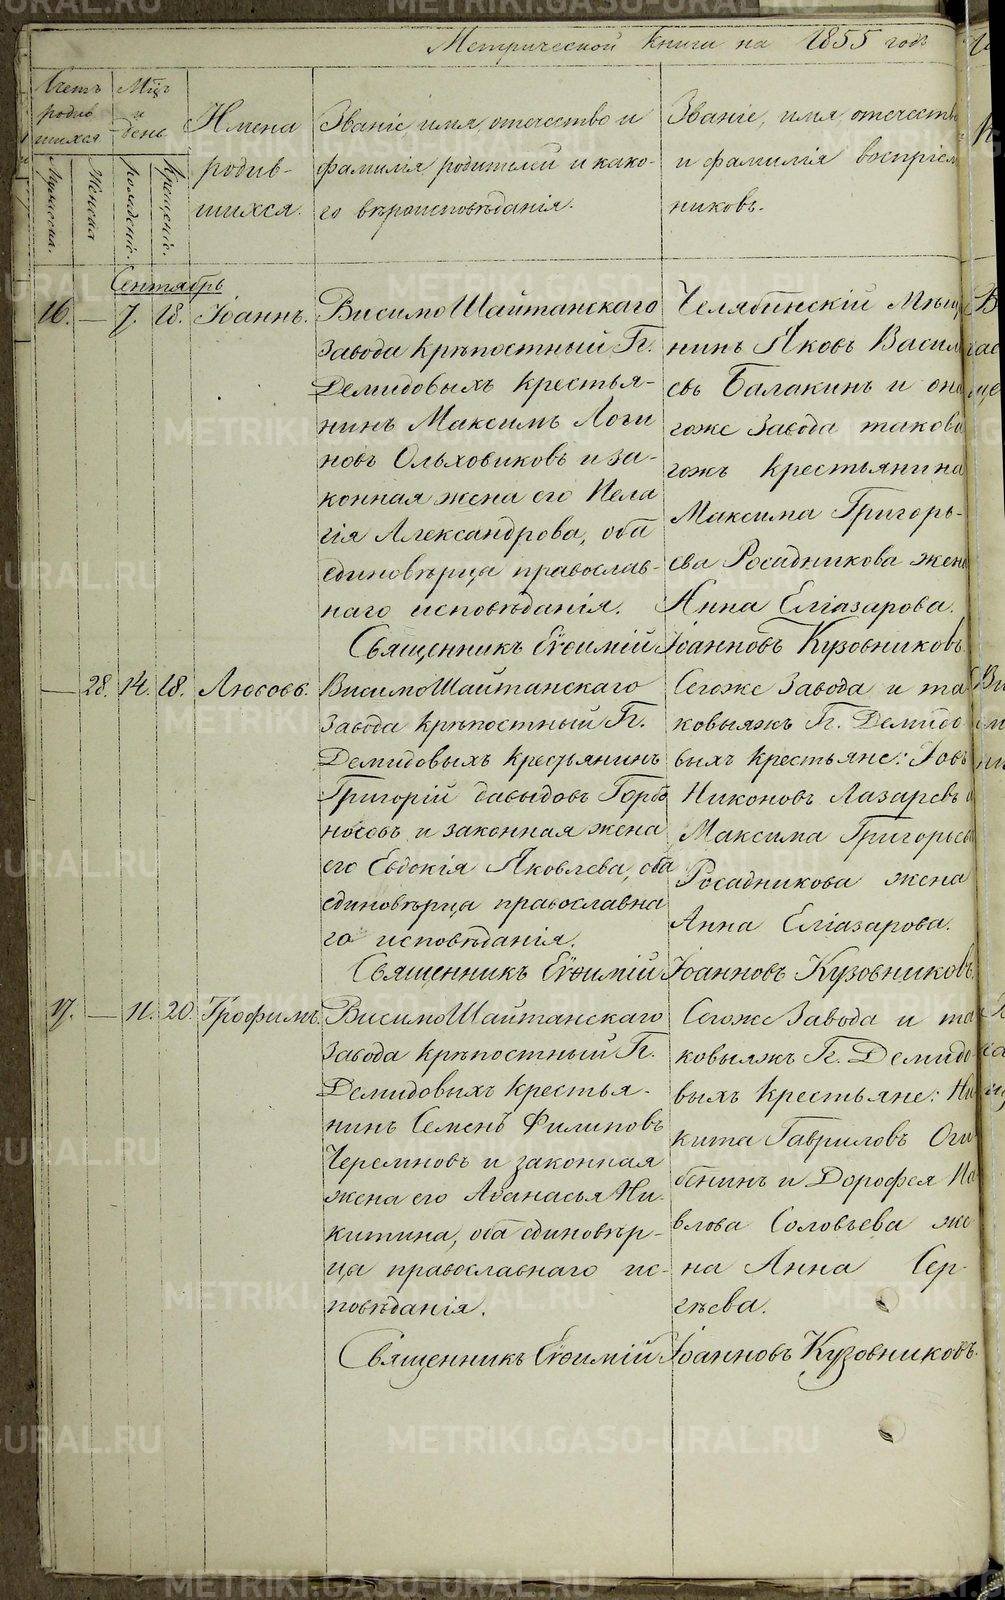 Метрической книги на 1855 годъ
Счетъ родив шихся
Мужеска.
Женска
Мцъ и день
рожденіе.
Крещеніе.
Имена
родив-
шихся.
Званіе, имя, отечество и
фамилія родителей и како-
го вѣроисповѣданія.
Званіе, имя отечество
и фамилія воспріем
никовъ.
Сентябрь
16. — 7. 18. Іоаннъ.
ВисимоШайтанскаго
завода крѣпостный Гг.
Демидовыхъ крестья-
нинъ Максимъ Логи
новъ Ольховиковъ и за-
конная жена его Пела
гія Александрова, оба
единовѣрца православ-
наго исповѣданія.
Челябинскій Мѣща
нинъ Яковъ Василь
евъ Балакинъ и она
гоже завода таково
гожъ крестьянина
Максима Григорь-
ева Росадникова жена
Анна Еліазарова.
Священникъ Евѳимій Іоанновъ Кузовниковъ
— 28. 14. 18. Любовь.
ВисимоШайтанскаго
завода крѣпостный Гг.
Демидовыхъ крестьянинъ
Григорій Давыдовъ Горбо
носовъ и законная жена
его Евдокія Яковлева, оба
единовѣрца православна
го исповѣданія.
Сегоже завода и та
ковыяжъ Гг. Демидо
выхъ крестьяне: Іовъ
Никоновъ Лазаревъ и
Максима Григорьева
Росадникова жена
Анна Еліазарова.
Священникъ Евѳимій Іоанновъ Кузовниковъ
17. — 11. 20. Трофимъ.
ВисимоШайтанскаго
завода крѣпостный Гг.
Демидовыхъ крестья-
нинъ Семенъ Филиповъ
Черемновъ и законная
жена его Аѳанасья Ни
китина, оба единовѣр-
ца православнаго ис-
повѣданія.
Сегоже Завода и та
ковыяжъ Гг. Демидо
выхъ крестьяне: Ни
кита Гавриловъ Оги
бенинъ и Дорофея Па
влова Соловьева же
на Анна Сер-
гѣева.
Священникъ Евѳимій Іоанновъ Кузовниковъ.
METRIKI.GASO-URAL.RU